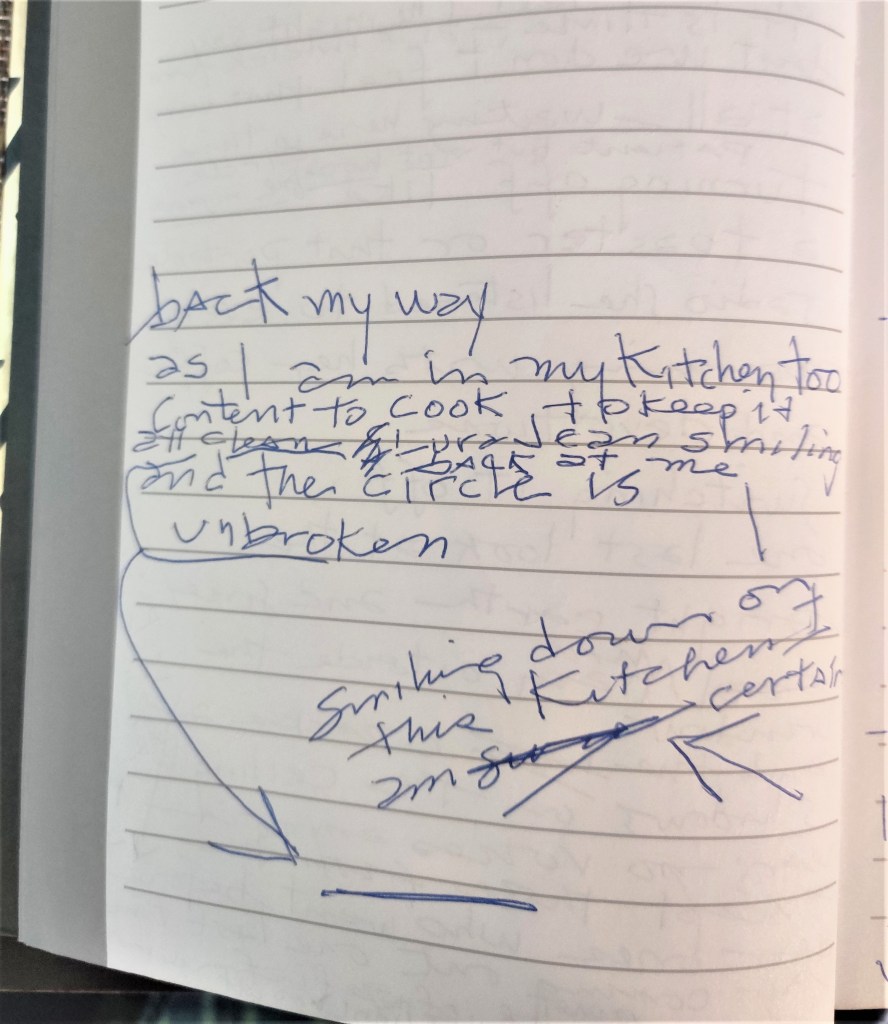 back my way
as I am in my Kitchen too
Content to cook, to keep it
all clean smiling
back at me
and the circle is
unbroken
smiling down on
this Kitchen I
am certain